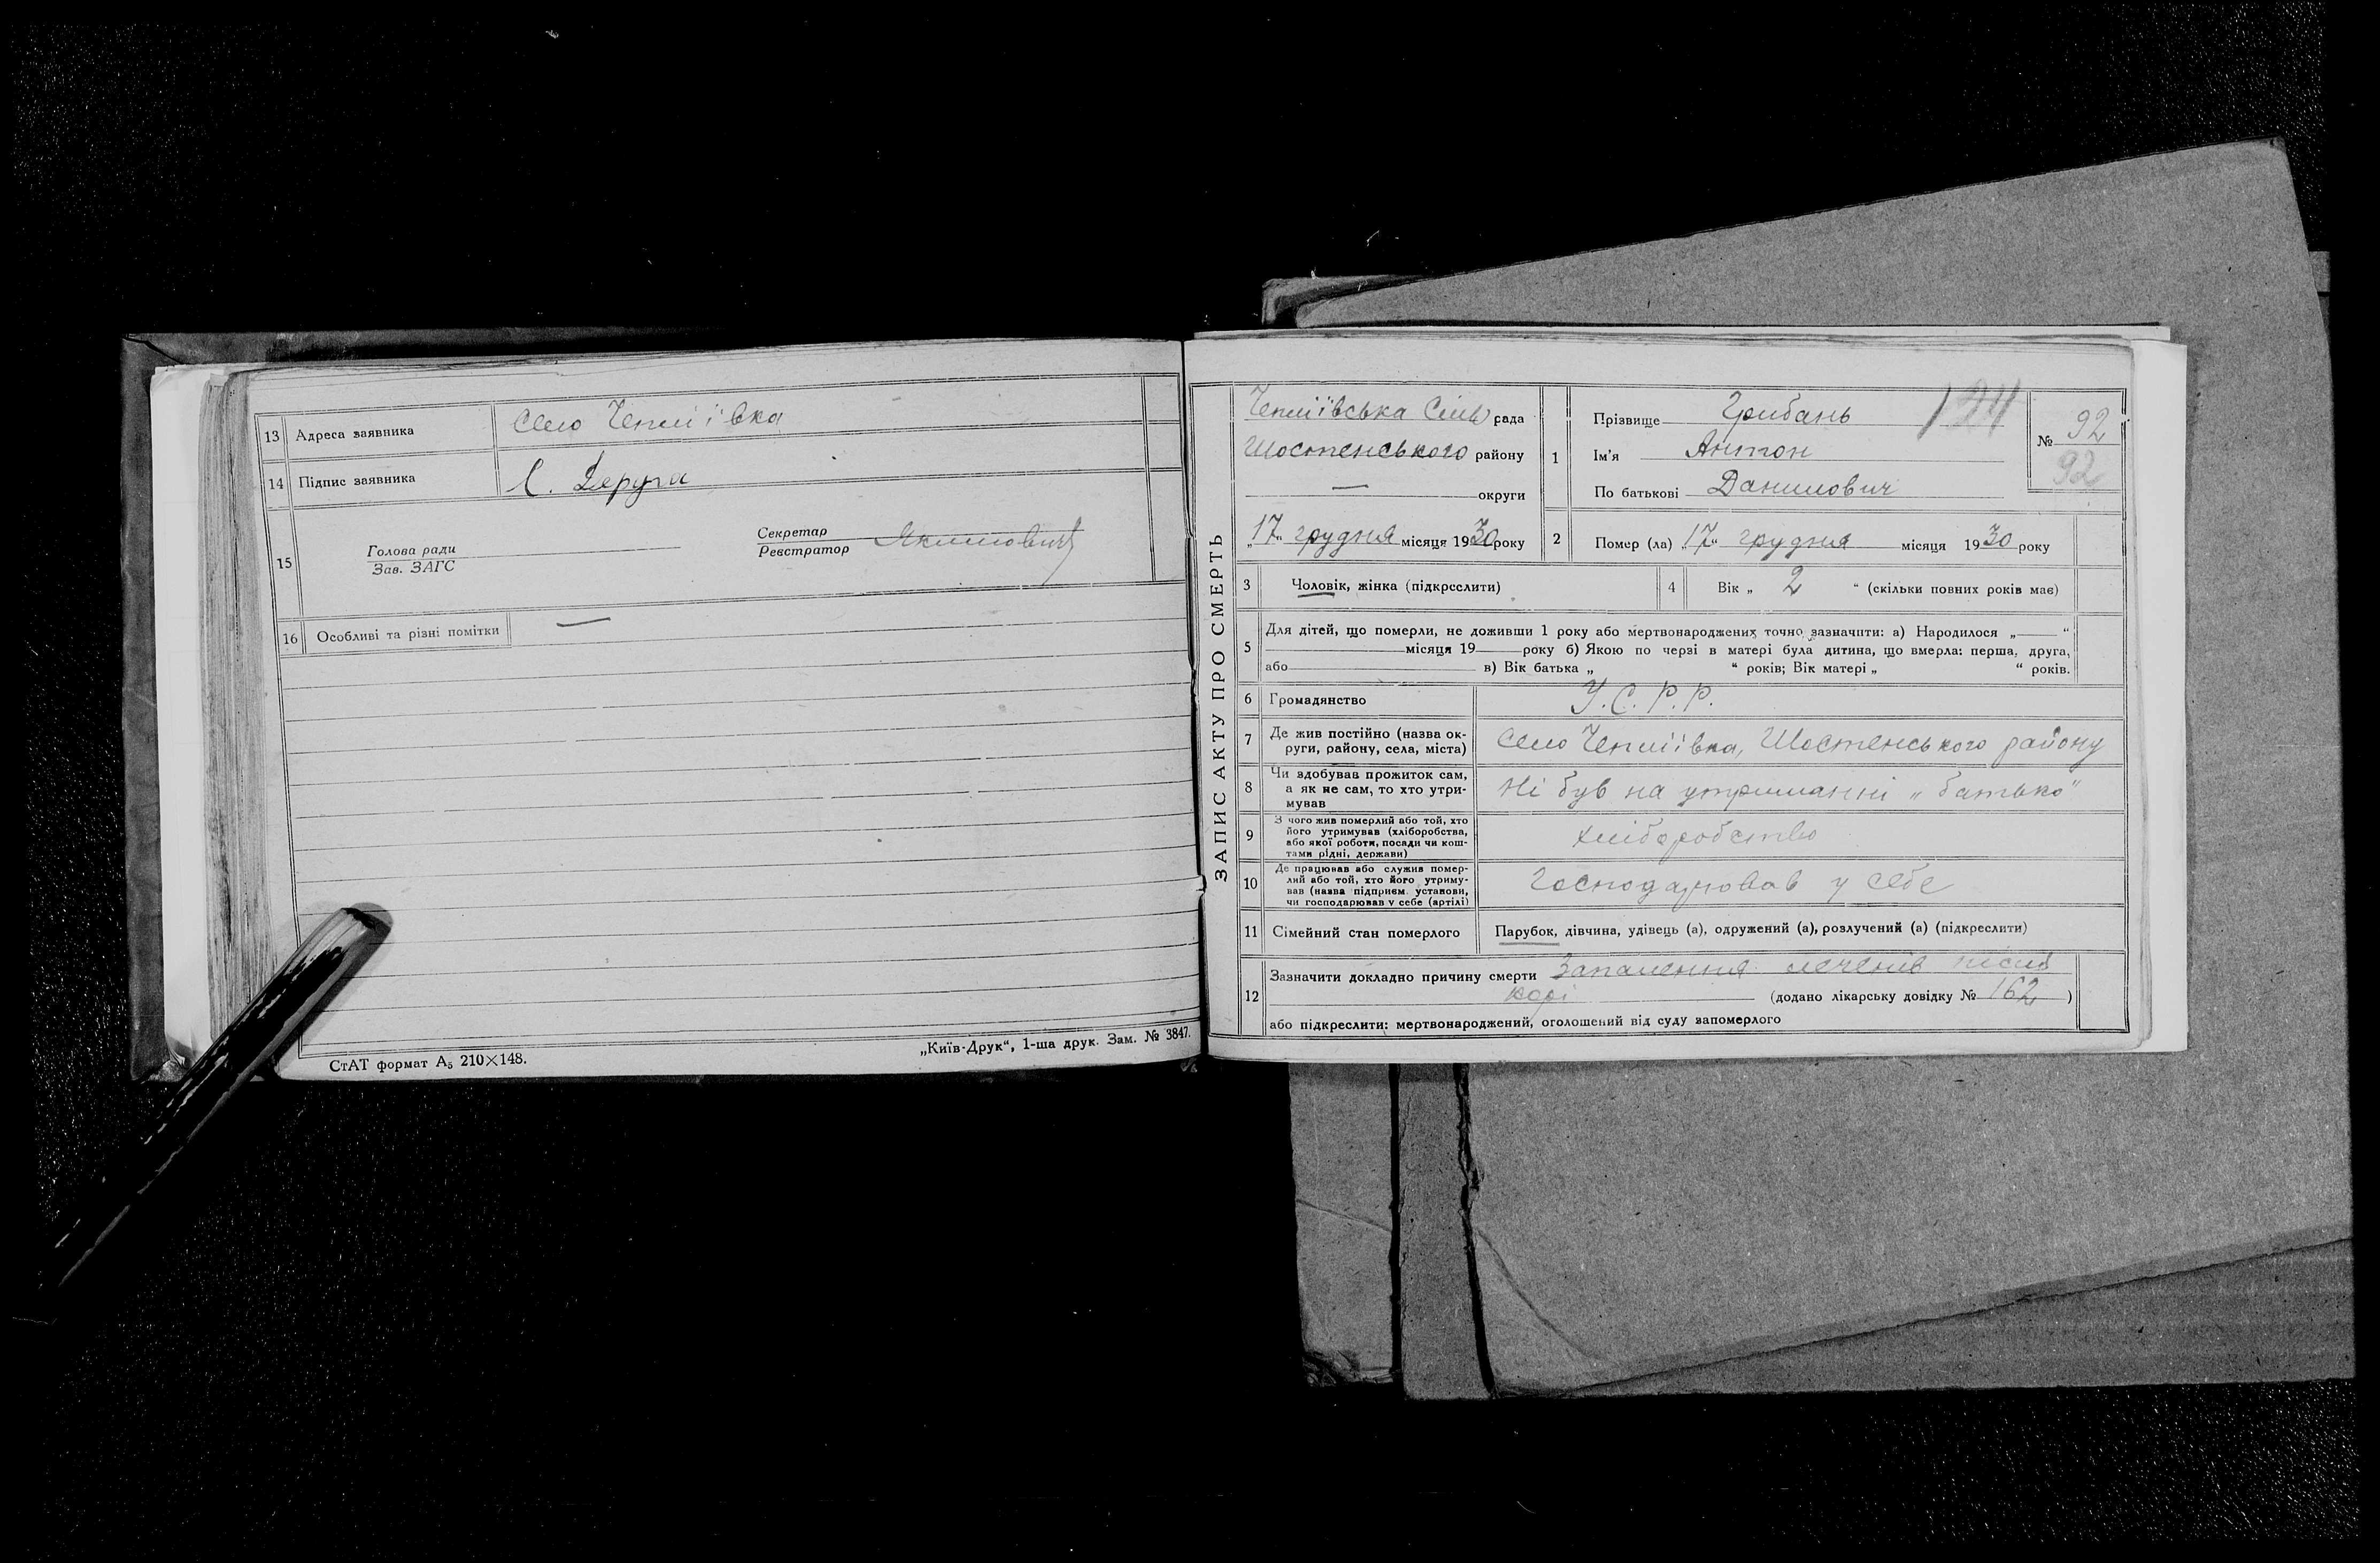 13 Адреса заявника Село Чепліївка
14 Підпис заявника С. Деруга
15 Голова ради
Зав. ЗАГС
Секретар
Реєстратор
16 Особливі та різні помітки —
СтАТ формат А₅ 210×148.
„Київ-Друк“, 1-ша друк. Зам. № 3847.
ЗАПИС АКТУ ПРО СМЕРТЬ
Чепліївська Сіль рада
Шостенського району
— округи
„17“ грудня місяця 1930 року
1 Прізвище Грибань
Ім'я Антон
По батькові Данилович
№ 92
92
2 Помер (ла) „17“ грудня місяця 1930 року
3 Чоловік, жінка (підкреслити)
4 Вік „ 2 “ (скільки повних років має)
5 Для дітей, що померли, не доживши 1 року або мертвонароджених точно зазначити: а) Народилося „—“
місяця 19 року б) Якою по черзі в матері була дитина, що вмерла: перша, друга,
або в) Вік батька „ “ років; Вік матері „ “ років.
6 Громадянство У.С.Р.Р.
7 Де жив постійно (назва ок-
руги, району, села, міста)
Село Чепліївка, Шостенського району
8 Чи здобував прожиток сам,
а як не сам, то хто утри-
мував
Ні був на утриманні „батько“
9 З чого жив померлий або той, хто
його утримував (хліборобства,
або якої роботи, посади чи кош-
тами рідні, держави)
хліборобство
10 Де працював або служив помер-
лий або той, хто його утриму-
вав (назва підприєм. установи,
чи господарював у себе (артілі)
Господарював у себе
11 Сімейний стан померлого
Парубок, дівчина, удівець (а), одружений (а), розлучений (а) (підкреслити)
12 Зазначити докладно причину смерти Запалення легенів після
корі (додано лікарську довідку № 162)
або підкреслити: мертвонароджений, оголошений від суду запомерлого